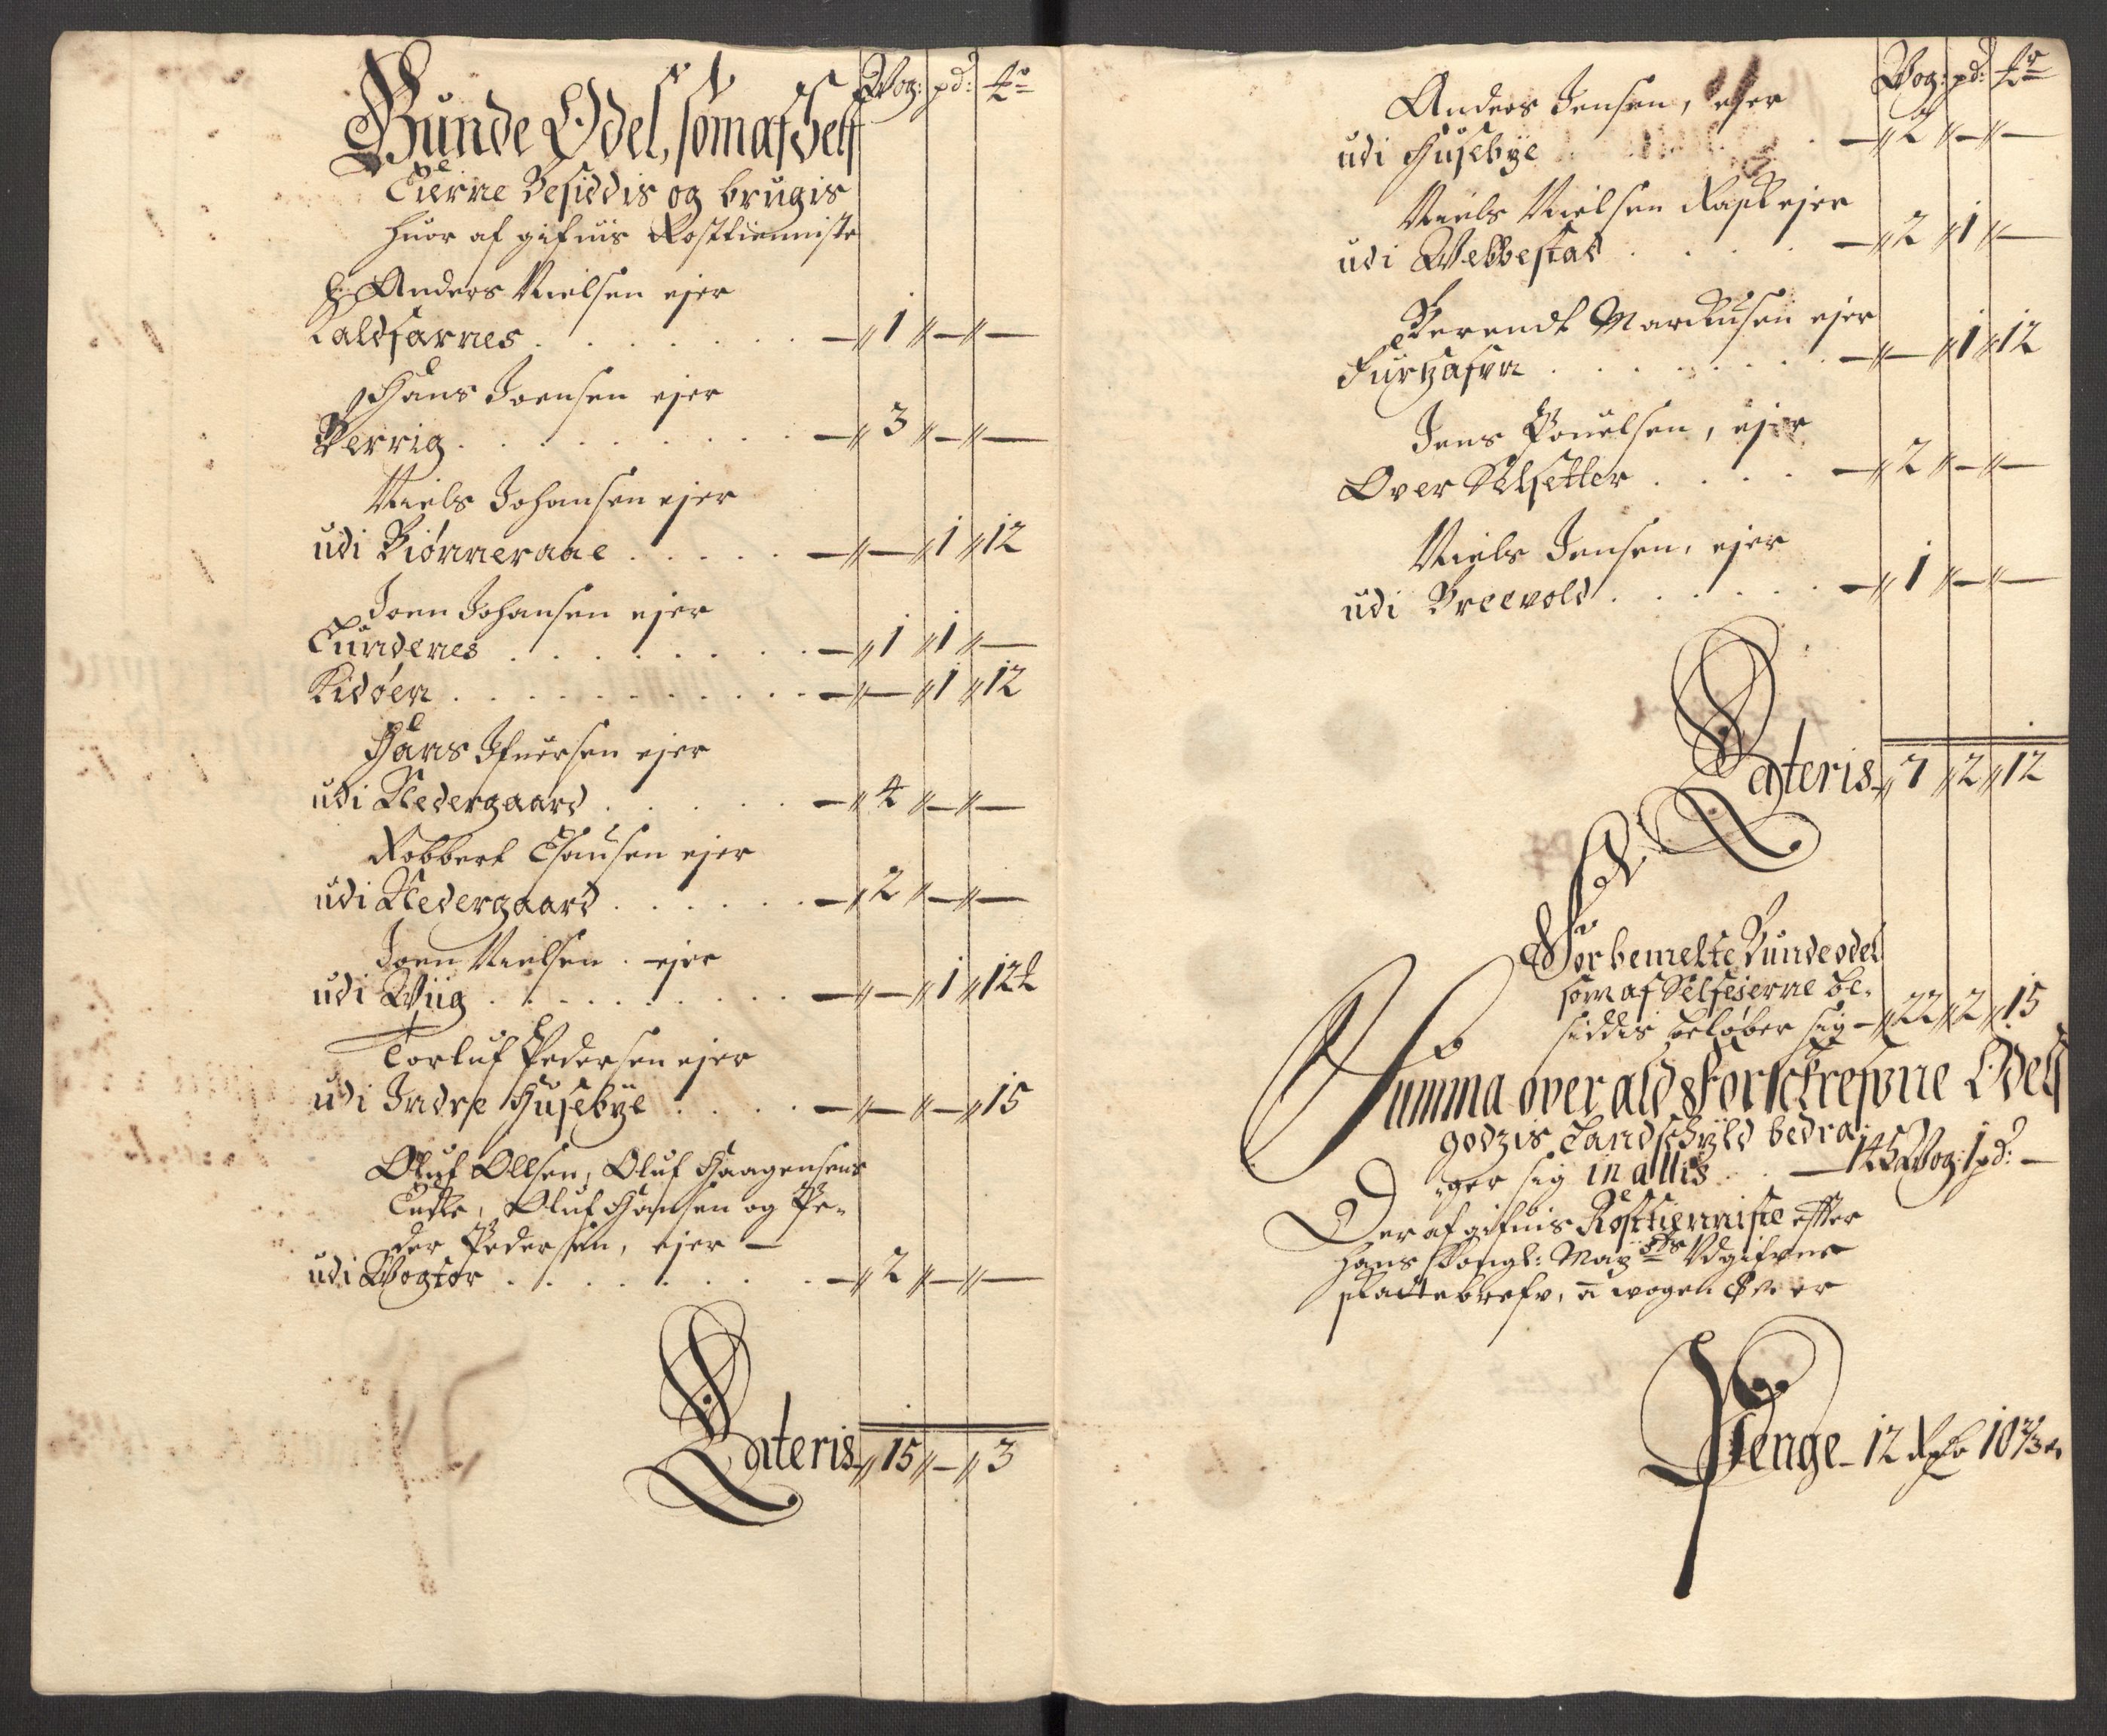 Vog: pd: ℔
Bunde Odel, som af Self
Eierne Besiddis og brugis
huor af gifuis Rosttienniste
H. Anders Nielsen ejer
Kaldfarnes . . . . . . . — 1 — —
Hans Joensen ejer
Berrig . . . . . . . . — 3 — —
Niels Johansen ejer
udi Biønneraae . . . . . — — 1 12
Joen Johansen ejer
Tundenes . . . . . . . . — 1 1 —
Kidøen . . . . . . . . . — — 1 12
Hans Ifuersen ejer
udi Nedergaard . . . . . — 4 — —
Robbert Clausen ejer
udi Nedergaard . . . . . — 2 — —
Joen Nielsen . ejer
udi Wiig . . . . . . . . — — 1 12
Torluf Pedersen ejer
udi Indre Husebye . . . . — — — 15
Oluf Ollsen, Oluf Haagensens
Encke, Oluf Hansen og Pe-
der Pedersen, ejer —
udi Wogtør . . . . . . . — 2 — —
Lateris 15 — 3
Vog: pd: ℔
Anders Jensen, ejer
udi Husebye . — 2 — —
Niels Nielsen Rask ejer
udi Webbestad . . . . — 2 1 —
Berendt Marckusen ejer
Furhafvn . . . . . . . — — 1 12
Jens Pouelsen, ejer
Over Selsetter . . . . — 2 — —
Niels Jensen, ejer
udi Breevold . . . . . . — 1 — —
Lateris 7 2 12
Forbemelte Bundeodel
som af Selfejerne be-
siddis beløber sig — 22 2 15
Summa over ald Forschrefvne Odels
godzis Landschyld bedra-
ger sig in allis . . — 145 Vog: 1 pd: —
Deraf gifuis Rosttienniste efter
Hans Kongl: May:ts Udgifvne
skattebrefv, a wogen 8 s er
Penge — 12 Rdr 10 2/3 s